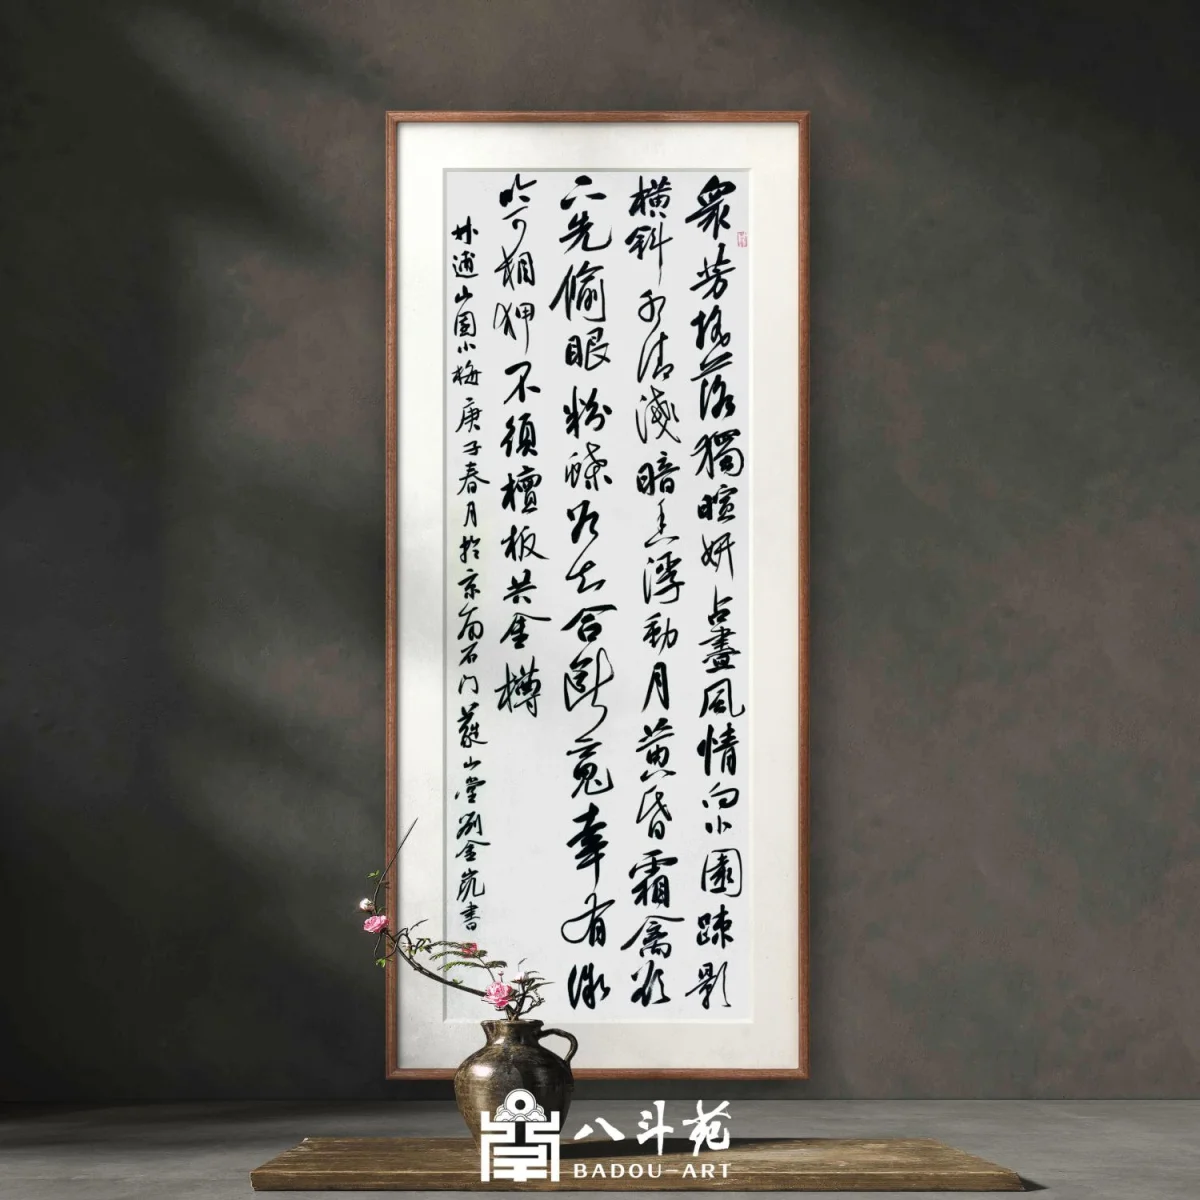 衆芳摇落獨暄妍占盡風情向小園疎影
橫斜水清淺暗香浮動月黄昏霜禽欲
下先偷眼粉蝶如知合斷魂幸有微
吟可相狎不須檀板共金樽
林逋山園小梅庚子春月於京南石门蕤山堂劉金凯書
八斗苑
BADOU-ART